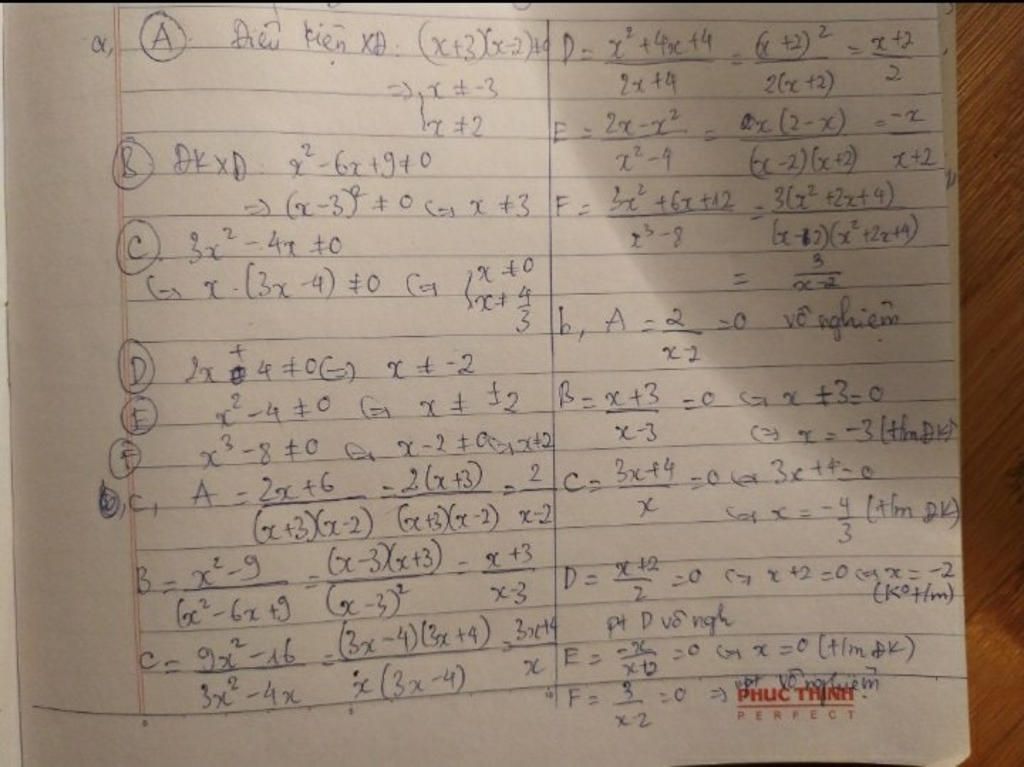 a, A Điều kiện XĐ: (x+3)(x-2)≠0
=> { x ≠ -3
x ≠ 2
B ĐKXĐ: x² - 6x + 9 ≠ 0
=> (x-3)² ≠ 0 <=> x ≠ 3
C. 3x² - 4x ≠ 0
<=> x . (3x-4) ≠ 0 <=> { x ≠ 0
x ≠ 4/3
D 2x + 4 ≠ 0 <=> x ≠ -2
E x² - 4 ≠ 0 <=> x ≠ ±2
F x³ - 8 ≠ 0 <=> x - 2 ≠ 0 <=> x ≠ 2
c, A = (2x+6)/((x+3)(x-2)) = 2(x+3)/((x+3)(x-2)) = 2/(x-2)
B = (x²-9)/(x²-6x+9) = (x-3)(x+3)/(x-3)² = (x+3)/(x-3)
C = (9x²-16)/(3x²-4x) = (3x-4)(3x+4)/(x(3x-4)) = (3x+4)/x
D = (x²+4x+4)/(2x+4) = (x+2)²/(2(x+2)) = (x+2)/2
E = (2x-x²)/(x²-4) = x(2-x)/((x-2)(x+2)) = -x/(x+2)
F = (3x²+6x+12)/(x³-8) = 3(x²+2x+4)/((x-2)(x²+2x+4))
= 3/(x-2)
b, A = 2/(x-2) = 0 vô nghiệm
B = (x+3)/(x-3) = 0 <=> x+3=0
<=> x = -3 (t/m ĐK)
C = (3x+4)/x = 0 <=> 3x+4=0
<=> x = -4/3 (t/m ĐK)
D = (x+2)/2 = 0 <=> x+2=0 <=> x = -2
(Ko t/m)
pt D vô ngh
E = -x/(x+2) = 0 <=> x=0 (t/m ĐK)
F = 3/(x-2) = 0 => pt vô nghiệm
PHUC THINH
PERFECT